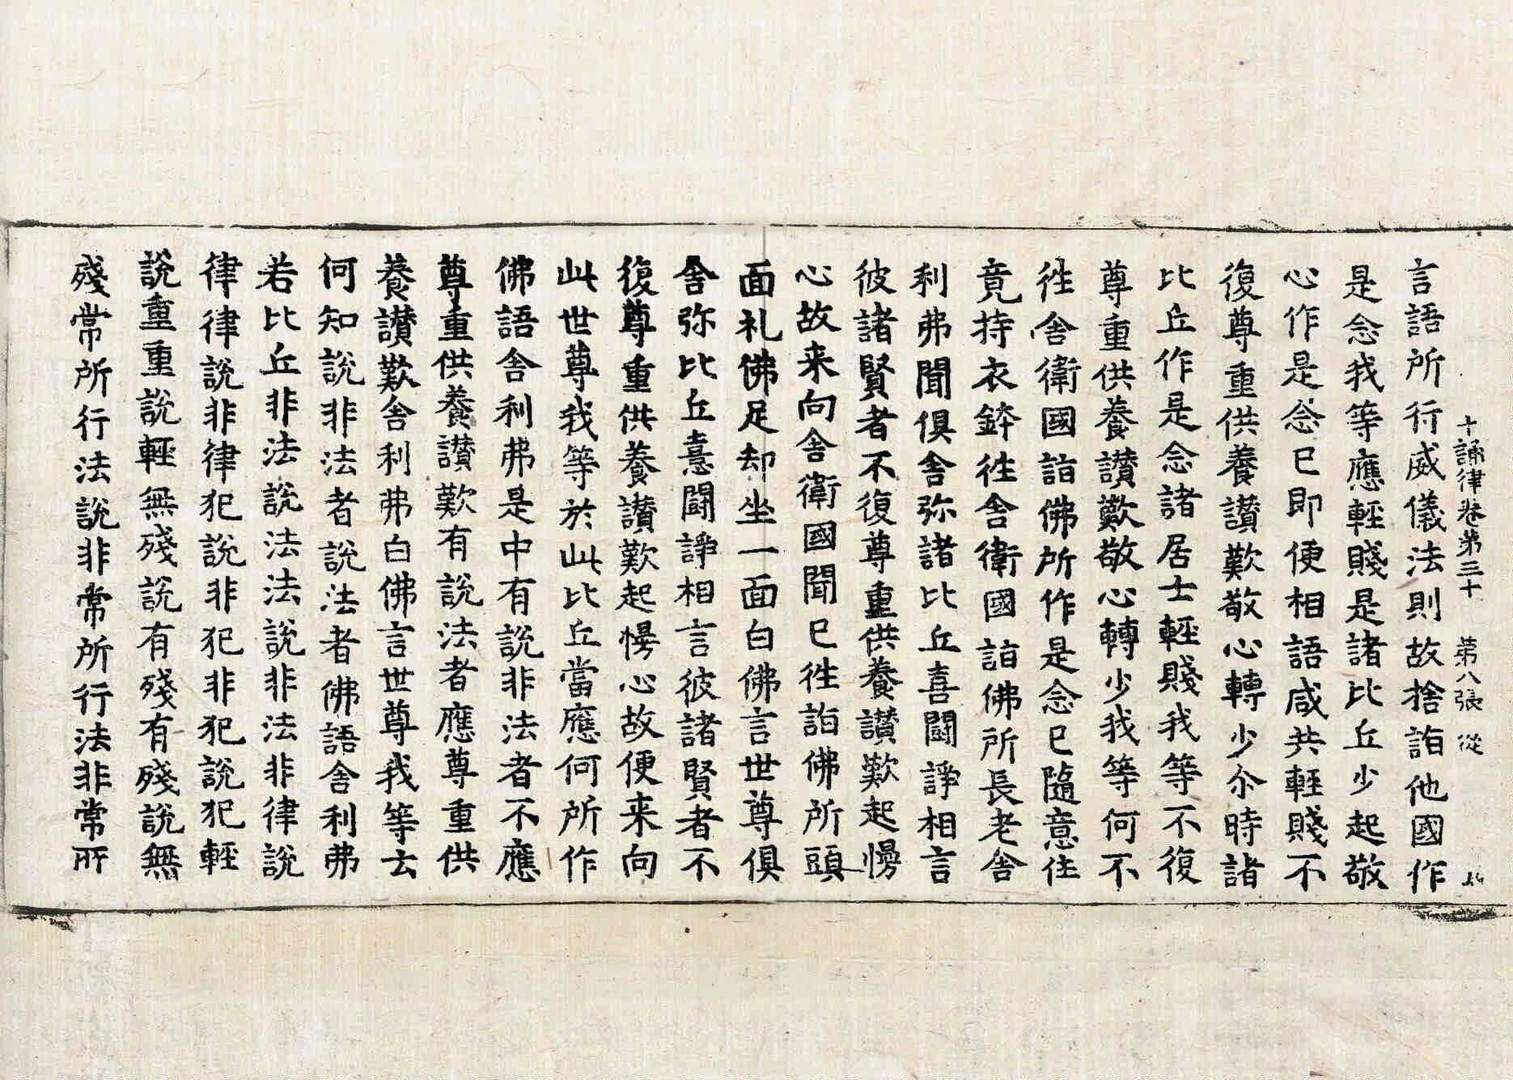 十誦律卷第三十 第八張 從
言語所行威儀法則故捨詣他國作
是念我等應輕賤是諸比丘少起敬
心作是念已即便相語咸共輕賤不
復尊重供養讃歎敬心轉少尒時諸
比丘作是念諸居士輕賤我等不復
尊重供養讃歎敬心轉少我等何不
徃舎衛國詣佛所作是念已隨意住
竟持衣鉢徃舎衛國詣佛所長老舎
利弗聞俱舎弥諸比丘喜闘諍相言
彼諸賢者不復尊重供養讃歎起慢
心故来向舎衛國聞已徃詣佛所頭
面礼佛足却坐一面白佛言世尊俱
舎弥比丘憙闘諍相言彼諸賢者不
復尊重供養讃歎起慢心故便来向
此世尊我等於此比丘當應何所作
佛語舎利弗是中有說非法者不應
尊重供養讃歎有說法者應尊重供
養讃歎舎利弗白佛言世尊我等云
何知說非法者說法者佛語舎利弗
若比丘非法說法法說非法非律說
律律說非律犯說非犯非犯說犯輕
說重重說輕無殘說有殘有殘說無
殘常所行法說非常所行法非常所